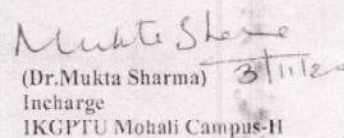 Mukta Sharma
(Dr.Mukta Sharma) 3/11/20
Incharge
IKGPTU Mohali Campus-II